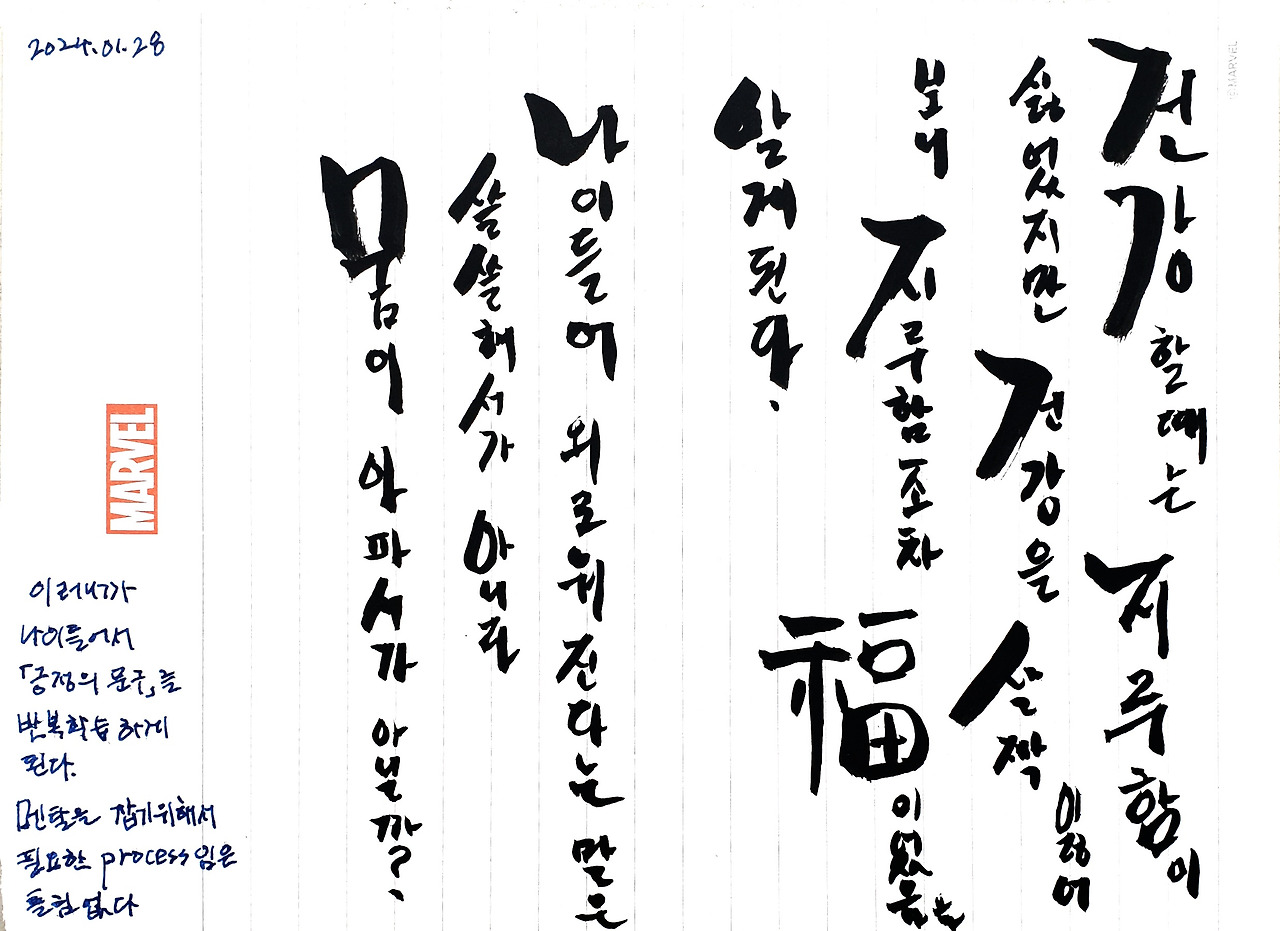 건강할 때는 지루함이
싫었지만 건강을 살짝 잃어
보니 지루함조차 福이었음을
알게된다.
나이들어 외로워진다는 말은
쓸쓸해서가 아니라
몸이 아파서가 아닐까?
2024.01.28
MARVEL
이러니까
나이들어서
「긍정의 문구」를
반복학습하게
된다.
멘탈을 잡기위해서
필요한 process임은
틀림없다
©MARVEL